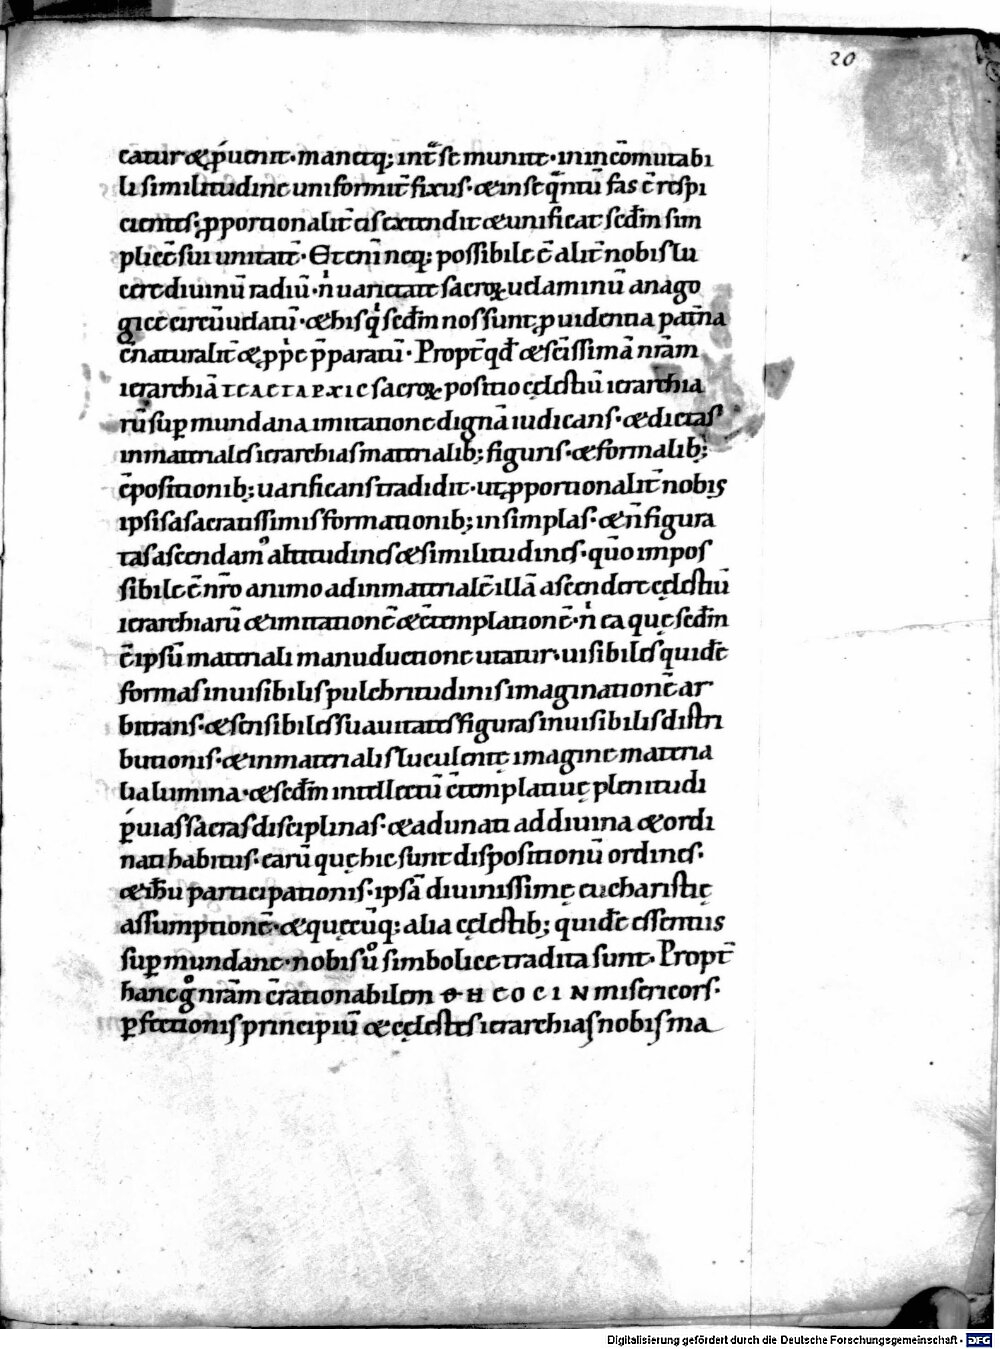 20
catur & ṕuenit · manetq; int᷒ se munite · in incōmutabi
li similitudine uniformit̄ fixus · & in se qͣntū fas ē respi
cientes; ꝓportionalit̄ eis extendit & unificat sedm̄ sim
plicē sui unitatē · Et eni̅ neq; possibile ē alit̄ nobis lu
cere diuinū radiū · nͥ uarietate sacroꝝ uelaminū anago
gice circūuelatū · & his qͥ sedm̄ nos sunt, ꝓuidentia pat̄na
c̄naturalit̄ & ꝓp̄e p̄paratū · Propt̄ qđ & sc̄issimā nr̄am
ierarchiā ΤΕΛΕΤΑΡΧΙΕ sacroꝝ positio cęlestiū ierarchia
rū suꝑmundana imitatione dignā iudicans · & dictas
inmateriales ierarchias materialib; figuris · & formalib;
c̄positionib; uarificans tradidit · ut ꝓportionalit̄ nobis
ipsis a sacratissimis formationib; in simplas · & n̄ figura
tas ascendamꝰ altitudines & similitudines · qm̄o impos
sibile ē nr̄o animo ad inmaterialē illā ascendere cęlestiū
ierarchiarū & imitationē & c̄templationē · nͥ ea quę sedm̄
ē ipsū materiali manuductione utatur · uisibiles quidē
formas inuisibilis pulchritudinis imaginationē ar
bitrans · & sensibiles suauitates figuras inuisibilis distri
butionis · & inmaterialis luculentę imagine materia
lia lumina · & sedm̄ intellectū c̄templatiuę plenitudi
ṕuias sacras disciplinas · & adunati ad diuina & ordi
nati habitus · earū quę hic sunt dispositionū ordines ·
& ih̄u participationis · ipsā diuinissimę eucharistię
assumptionē · & quęcūq; alia cęlestib; quidē essentiis
suꝑmundane · nobis ū̊ simbolice tradita sunt · Propt̄
hanc g̊ nr̄am c̄rationabilem ΘΗΕΟCΙΝ misericors ·
ꝑfectionis principiū & cęlestes ierarchias nobis ma
Digitalisierung gefördert durch die Deutsche Forschungsgemeinschaft · DFG